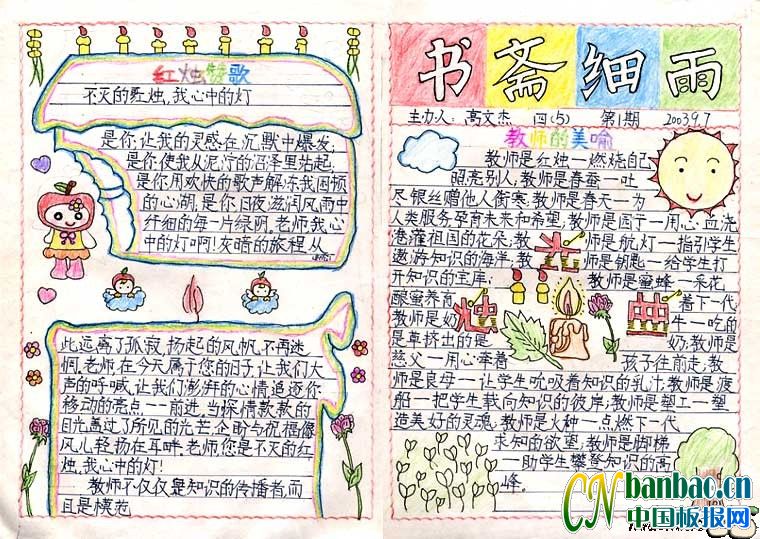 红烛颂歌
不灭的红烛,我心中的灯
是你,让我的灵感在沉默中爆发,
是你使我从泥泞的沼泽里站起;
是你用欢快的歌声解冻我困顿
的心湖,是你日夜滋润风雨中
纤细的每一片绿阴,老师,我心
中的灯啊!灰暗的旅程,从
此远离了孤寂,扬起的风帆,不再迷
惘,老师,在今天属于您的日子,让我们大
声的呼喊,让我们澎拜的心情追逐你
移动的亮点,一一前进,当深情款款的
目光,高过了所见的光芒,企盼与祝福像
风儿轻扬在耳畔,老师,您是不灭的红
烛,我心中的灯!
教师不仅仅是知识的传播者,而
且是模范
书斋细雨
主办人:高文杰 四(5) 第1期 2003.9.7
教师的美喻
教师是红烛一燃烧自己
照亮别人;教师是春蚕一吐
尽银丝赠他人衔寒;教师是春天一为
人类服务,孕育未来和希望;教师是园丁一用心血浇
灌祖国的花朵;教师是航灯一指引学生
遨游知识的海洋;教师是钥匙一给学生打
开知识的宝库;教师是蜜蜂一采花
酿蜜养育着下一代
教师是奶牛一吃的
是草挤出的是奶;教师是
慈父一用心牵着孩子往前走;教
师是良母一让学生吮吸着知识的乳汁;教师是渡
船一把学生载向知识的彼岸;教师是塑工一塑
造美好的灵魂;教师是火种一点燃下一代
求知的欲望;教师是脚梯
一助学生攀登知识的高
峰。
CNbanbao.cn
中国板报网